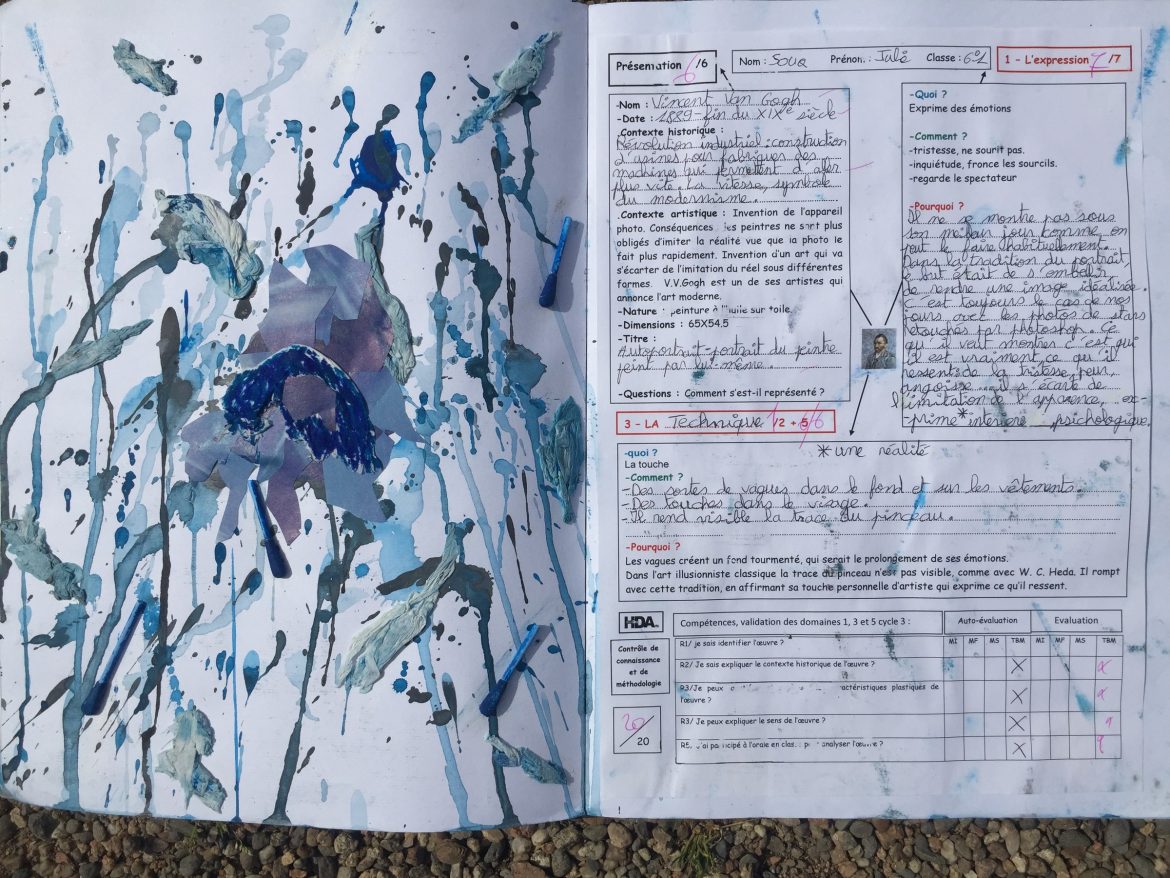 Présentation 6 /6
Nom : Souq Prénom : Julé Classe : 6°1
1 - L'expression 7 /7
-Nom : Vincent Van Gogh
-Date : 1889-fin du XIXe siècle
-Contexte historique :
Révolution industriel : construction
d'usines pour fabriques des
machines qui permettent d'aller
plus vite. La vitesse, symbole
du modernisme.
-Contexte artistique : Invention de l'appareil
photo. Conséquences : les peintres ne sont plus
obligés d'imiter la réalité vue que la photo le
fait plus rapidement. Invention d'un art qui va
s'écarter de l'imitation du réel sous différentes
formes. V.V.Gogh est un de ses artistes qui
annonce l'art moderne.
-Nature : peinture à l'huile sur toile.
-Dimensions : 65X54,5
-Titre :
Autoportrait-portrait du peintre
peint par lui-même.
-Questions : Comment s'est-il représenté ?
-Quoi ?
Exprime des émotions
-Comment ?
-tristesse, ne sourit pas.
-inquiétude, fronce les sourcils.
-regarde le spectateur
-Pourquoi ?
Il ne se montre pas sous
son meilleur jour comme on
peut le faire habituellement.
Dans la tradition du portrait,
le but était de s'embélir,
de rendre une image idéalisée.
C'est toujours le cas de nos
jours avec les photos de stars
retouchés par photoshop. Ce
qu'il veut montrer c'est qui
il est vraiment, ce qu'il
ressent de la tristesse, peur,
angoisse... il s'écarte de
l'imitation de l'apparence, ex-
-prime * intérieure psichologique.
3 - LA Technique /2 + 5 /6
* une réalité
-quoi ?
La touche
-Comment ?
-Des sortes de vagues dans le fond et sur les vêtements.
-Des touches dans le visage.
-Il rend visible la trace du pinceau.
-Pourquoi ?
Les vagues créent un fond tourmenté, qui serait le prolongement de ses émotions.
Dans l'art illusionniste classique la trace du pinceau n'est pas visible, comme avec W. C. Heda. Il rompt
avec cette tradition, en affirmant sa touche personnelle d'artiste qui exprime ce qu'il ressent.
HDA.
Compétences, validation des domaines 1, 3 et 5 cycle 3 :
Auto-évaluation Evaluation
MI MF MS TBM MI MF MS TBM
Contrôle de
connaissance
et de
méthodologie
20
/20
R1/ je sais identifier l'œuvre ?
R2/ Je sais expliquer le contexte historique de l'œuvre ? X x
R3/Je peux caractéristiques plastiques de
l'œuvre ? X x
R3/ Je peux expliquer le sens de l'œuvre ? X
R5. J'ai participé à l'orale en classe pour analyser l'œuvre ? X